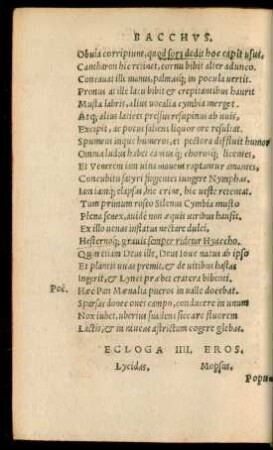 BACCHVS.
Obuia corripiunt, quod fors dedit hoc capit usus,
Cantharon hic retinet, cornu bibit alter adunco.
Concauat ille manus, palmasq; in pocula uertit.
Pronus at ille lacu bibit & crepitantibus haurit
Musta labris, alius uocalia cymbia merget.
Atq; alius latices pressis resupinus ab uuis,
Excipit, ac potus saliens liquor ore resultat.
Spumeus inque humeros, et pectora diffluit humor
Omnia ludus habet cantusq; choreaeq; licentes,
Et Venerem iam uina mouent raptantur amantes,
Concubitu satyri fugientes iungere Nymphas.
Ion iamiq; elapsas hic crine, hic ueste retentat.
Tum primum roseo Silenus Cymbia musto
Plena senex, auide non aequis uiribus hausit.
Ex illo uenas instatus nectare dulci,
Hesternoq; grauis semper ridetur Hyaccho.
Quin etiam Deus ille, Deus Ioue natus ab ipso
Et plantis uuas premit, & de uitibus hastas
Ingerit, & Lynci praebet cratera bibenti.
Poë. Haec Pan Maenalia pueros in ualle docebat.
Sparsas donec oues campo, conducere in unum
Nox iubet, uberius suadens siccare fluorem
Lactis, & in niueas astrictum cogere glebas.
ECLOGA IIII. EROS.
Lycidas, Mopsus.
Popu